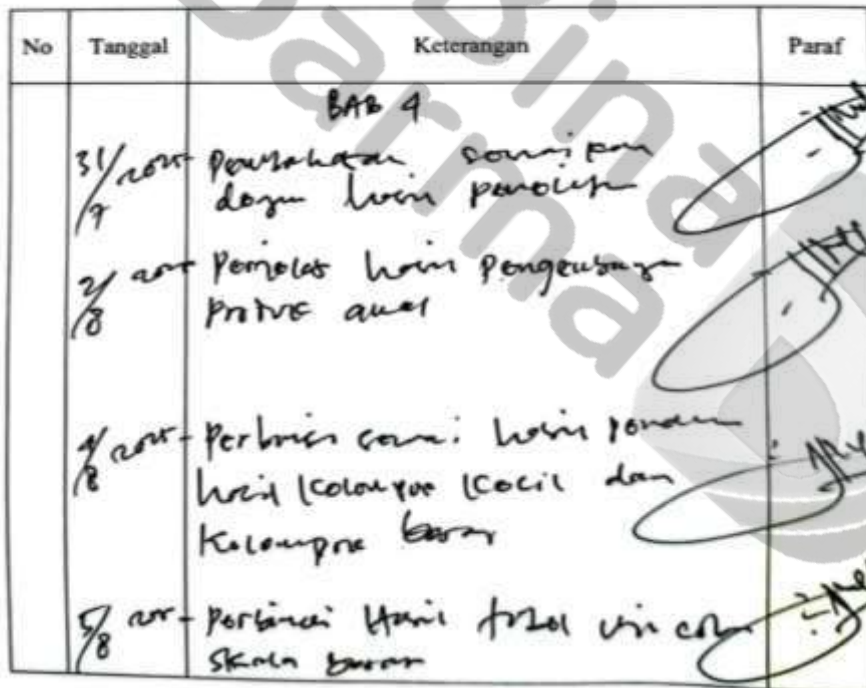 No Tanggal Keterangan Paraf
BAB 4
31/7 2025 - Pembahasan sesuaikan
dengan hasil penelitian
2/8 2025 - Perjelas hasil pengembangan
Produk awal
4/8 2025 - Perbaiki sesuai hasil
hasil kelompok kecil dan
kelompok besar
5/8 2025 - Perbaiki Hasil tabel uji coba
skala besar
Bina
Darma